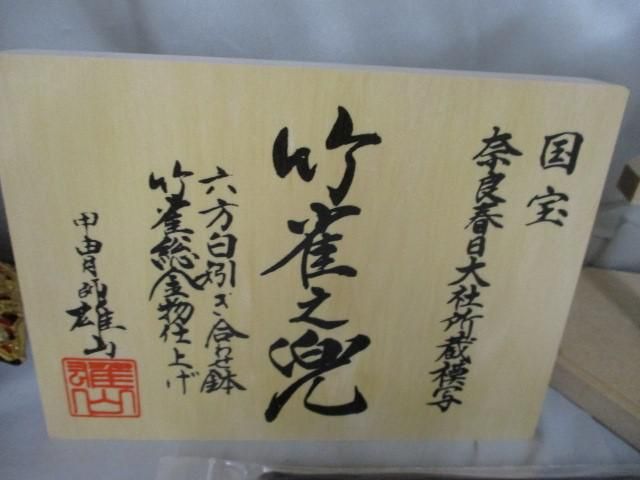 国宝
奈良春日大社所蔵模写
竹雀之兜
六方白矧ぎ合せ鉢
竹雀総金物仕上げ
甲冑師雄山
雄山